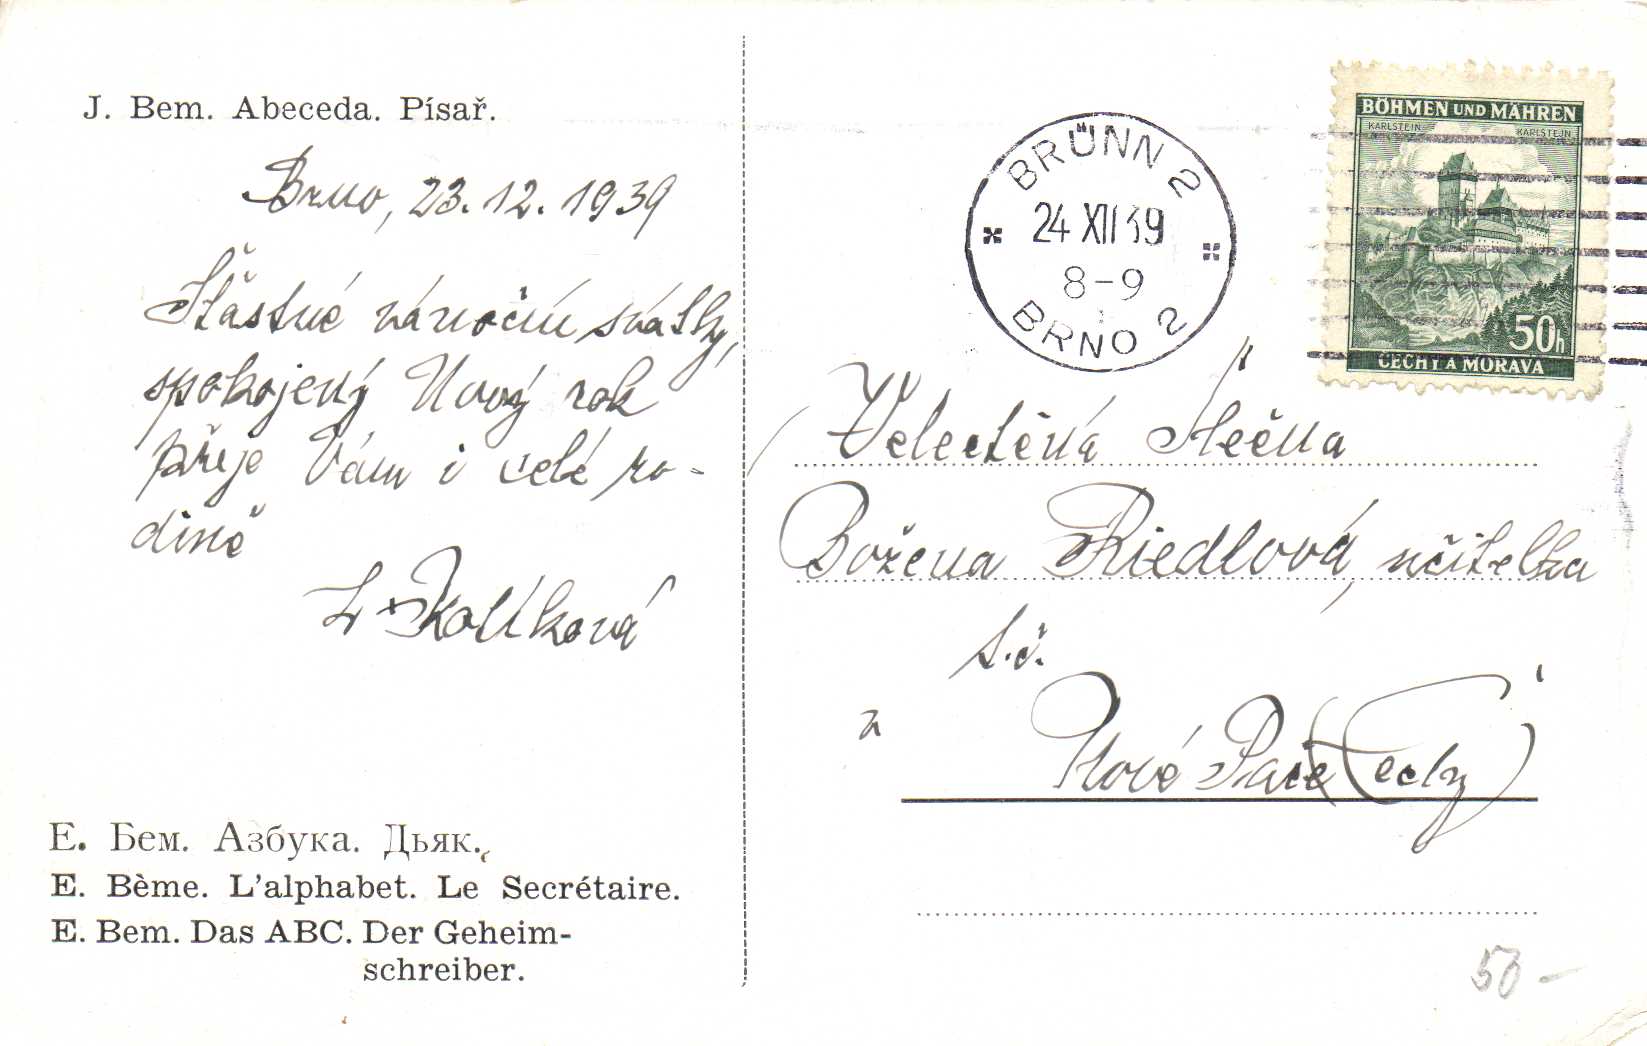 J. Bem. Abeceda. Písař.
Brno, 23.12.1939
Šťastné vánoční svátky,
spokojený Nový rok
přeje Vám i celé ro-
dině
Kolíková
E. Бем. Азбука. Дьяк.
E. Bème. L'alphabet. Le Secrétaire.
E. Bem. Das ABC. Der Geheim-
schreiber.
BRÜNN 2
24 XII 39
8-9
BRNO 2
BÖHMEN UND MÄHREN
KARLSTEIN KARLSTEIN
50h
ČECHY A MORAVA
Velectěná slečna
Božena Riedlová, učitelka
v
Nové Pace (Čechy)
50 -